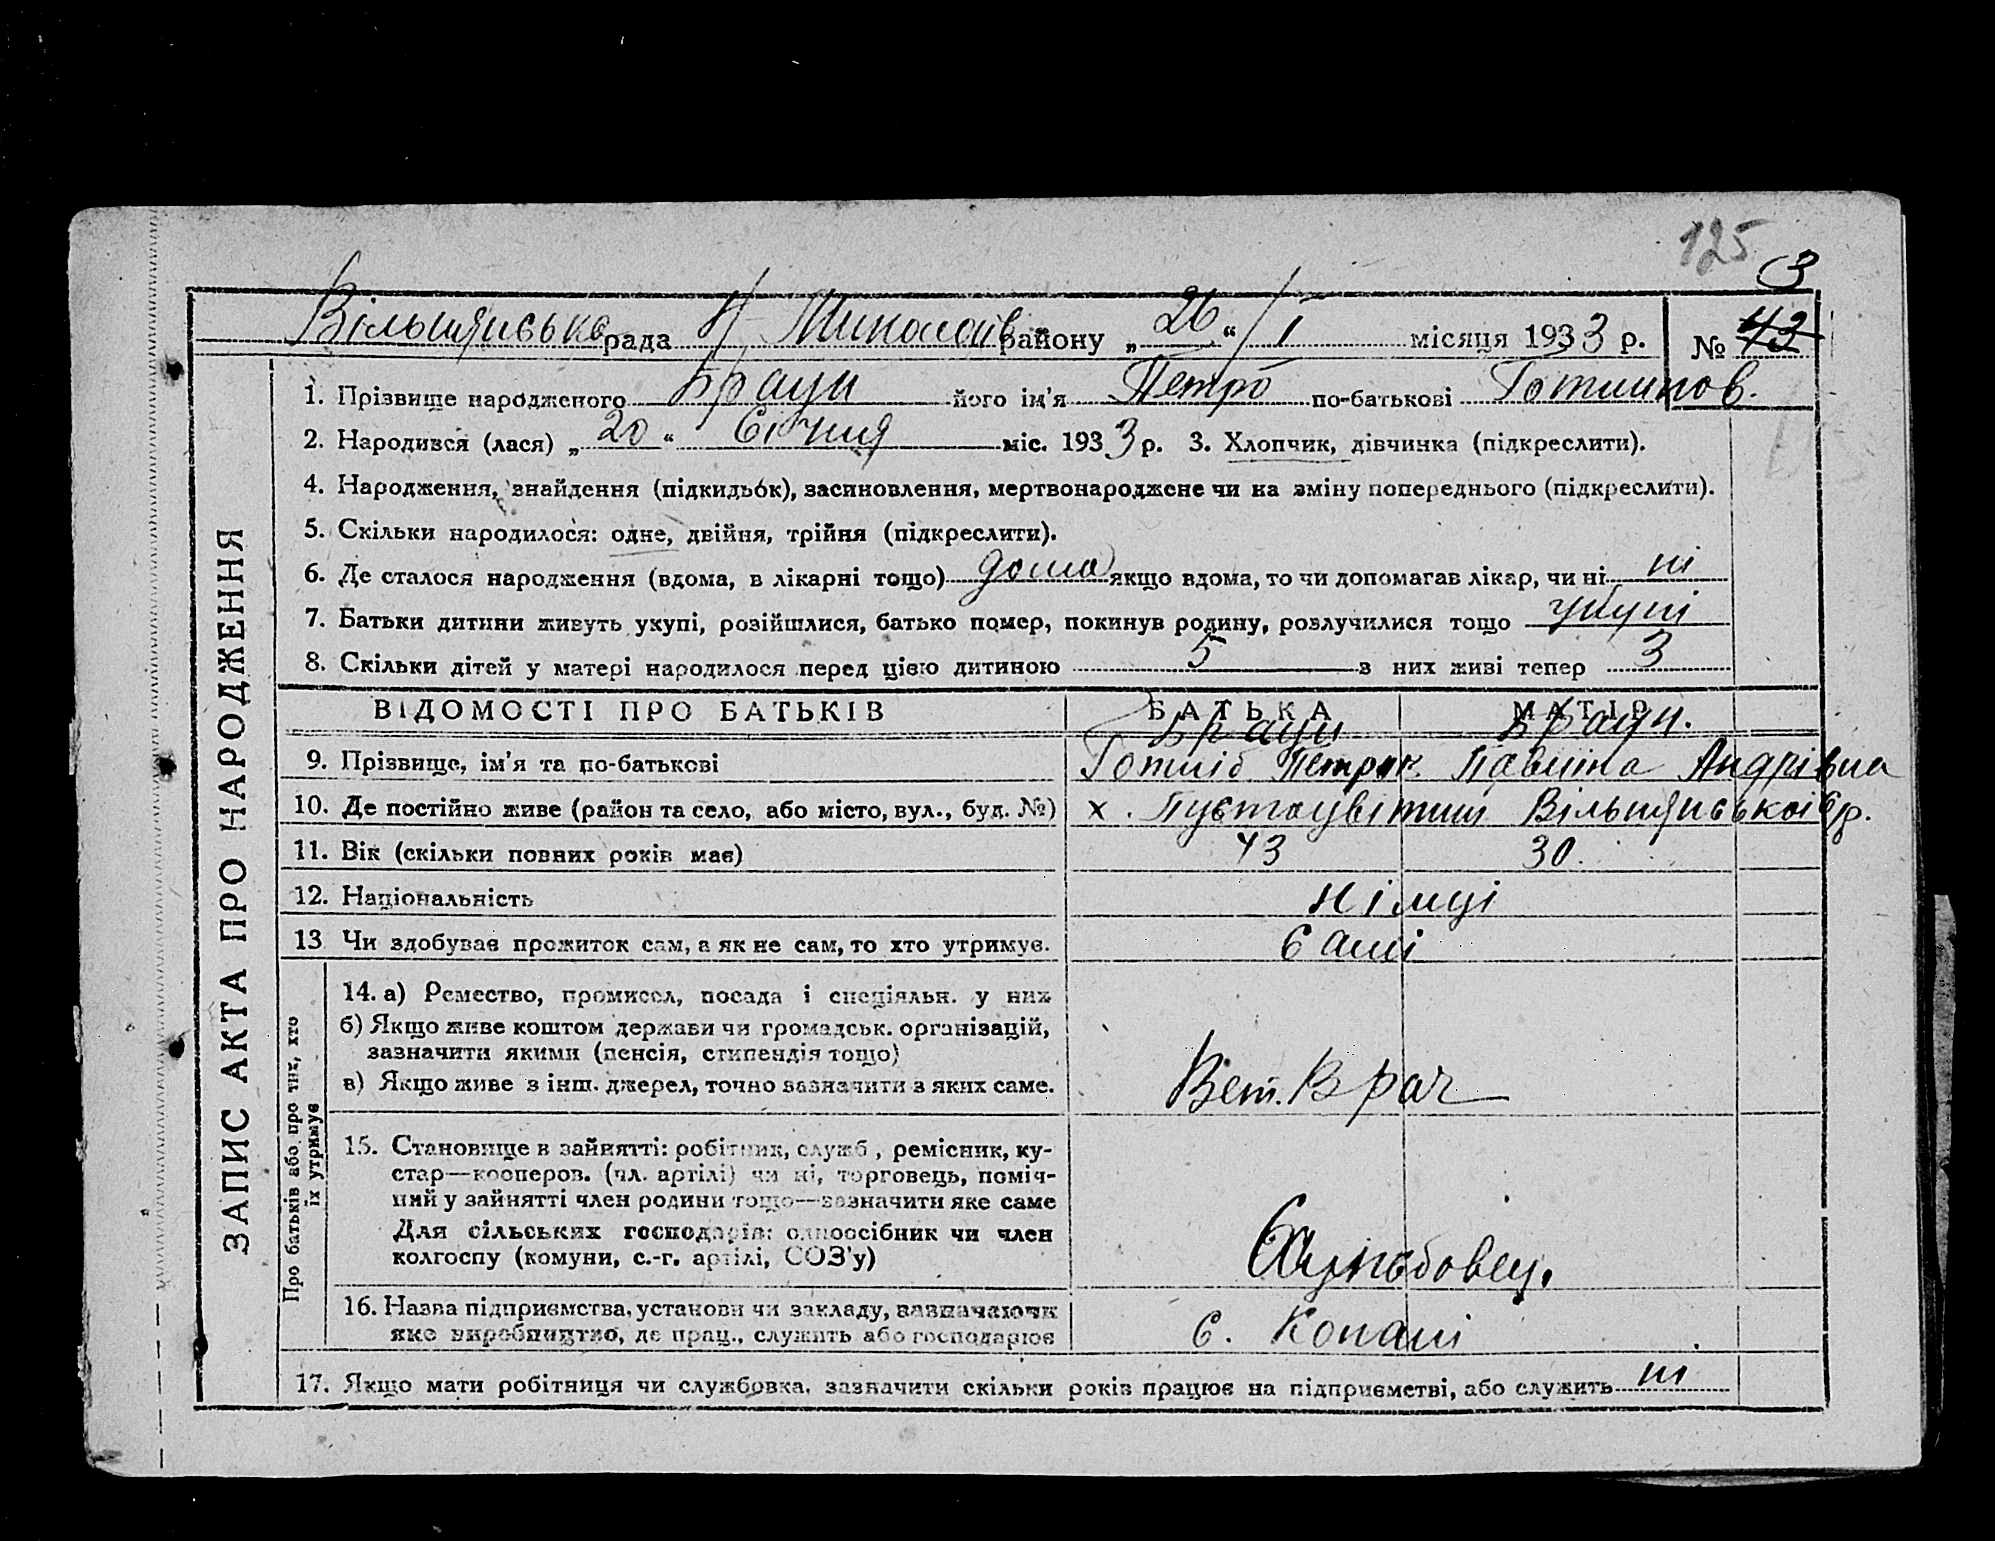 125
3
Вільшанська рада Н-Миколаїв району „ 26 “ / I місяця 1933 р. № 42
ЗАПИС АКТА ПРО НАРОДЖЕННЯ
1. Прізвище народженого Браун його ім'я Петро по-батькові Готлипов.
2. Народився (лася) „ 20 “ Січня міс. 1933 р. 3. Хлопчик, дівчинка (підкреслити).
4. Народження, знайдення (підкидьок), засиновлення, мертвонароджене чи на зміну попереднього (підкреслити).
5. Скільки народилося: одне, двійня, трійня (підкреслити).
6. Де сталося народження (вдома, в лікарні тощо) дома якщо вдома, то чи допомагав лікар, чи ні ні
7. Батьки дитини живуть укупі, розійшлися, батько помер, покинув родину, розлучилися тощо укупі
8. Скільки дітей у матері народилося перед цією дитиною 5 з них живі тепер 3
ВІДОМОСТІ ПРО БАТЬКІВ БАТЬКА МАТІР
Браун Браун.
9. Прізвище, ім'я та по-батькові Готліб Петров. Павліна Андрівна
10. Де постійно живе (район та село, або місто, вул., буд. №) х. Пустоцвітний Вільшянської с/р.
11. Вік (скільки повних років має) 43 30.
12. Національність німці
13 Чи здобуває прожиток сам, а як не сам, то хто утримує. Самі
Про батьків або про тих, хто їх утримує
14. а) Ремество, промисел, посада і спеціяльн. у них
б) Якщо живе коштом держави чи громадськ. організацій,
зазначити якими (пенсія, стипендія тощо)
в) Якщо живе з інш. джерел, точно зазначити з яких саме. Вет. Врач
15. Становище в зайнятті: робітник, служб., ремісник, ку-
стар—кооперов. (чл. артілі) чи ні, торговець, поміч-
ний у зайнятті член родини тощо—зазначити яке саме
Для сільських господарів: одноосібник чи член
колгоспу (комуни, с.-г. артілі, СОЗ'у) Службовец.
16. Назва підприємства, установи чи закладу, зазначаючи
яке виробництво, де прац., служить або господарює с. Копані
17. Якщо мати робітниця чи службовка, зазначити скільки років працює на підприємстві, або служить ні